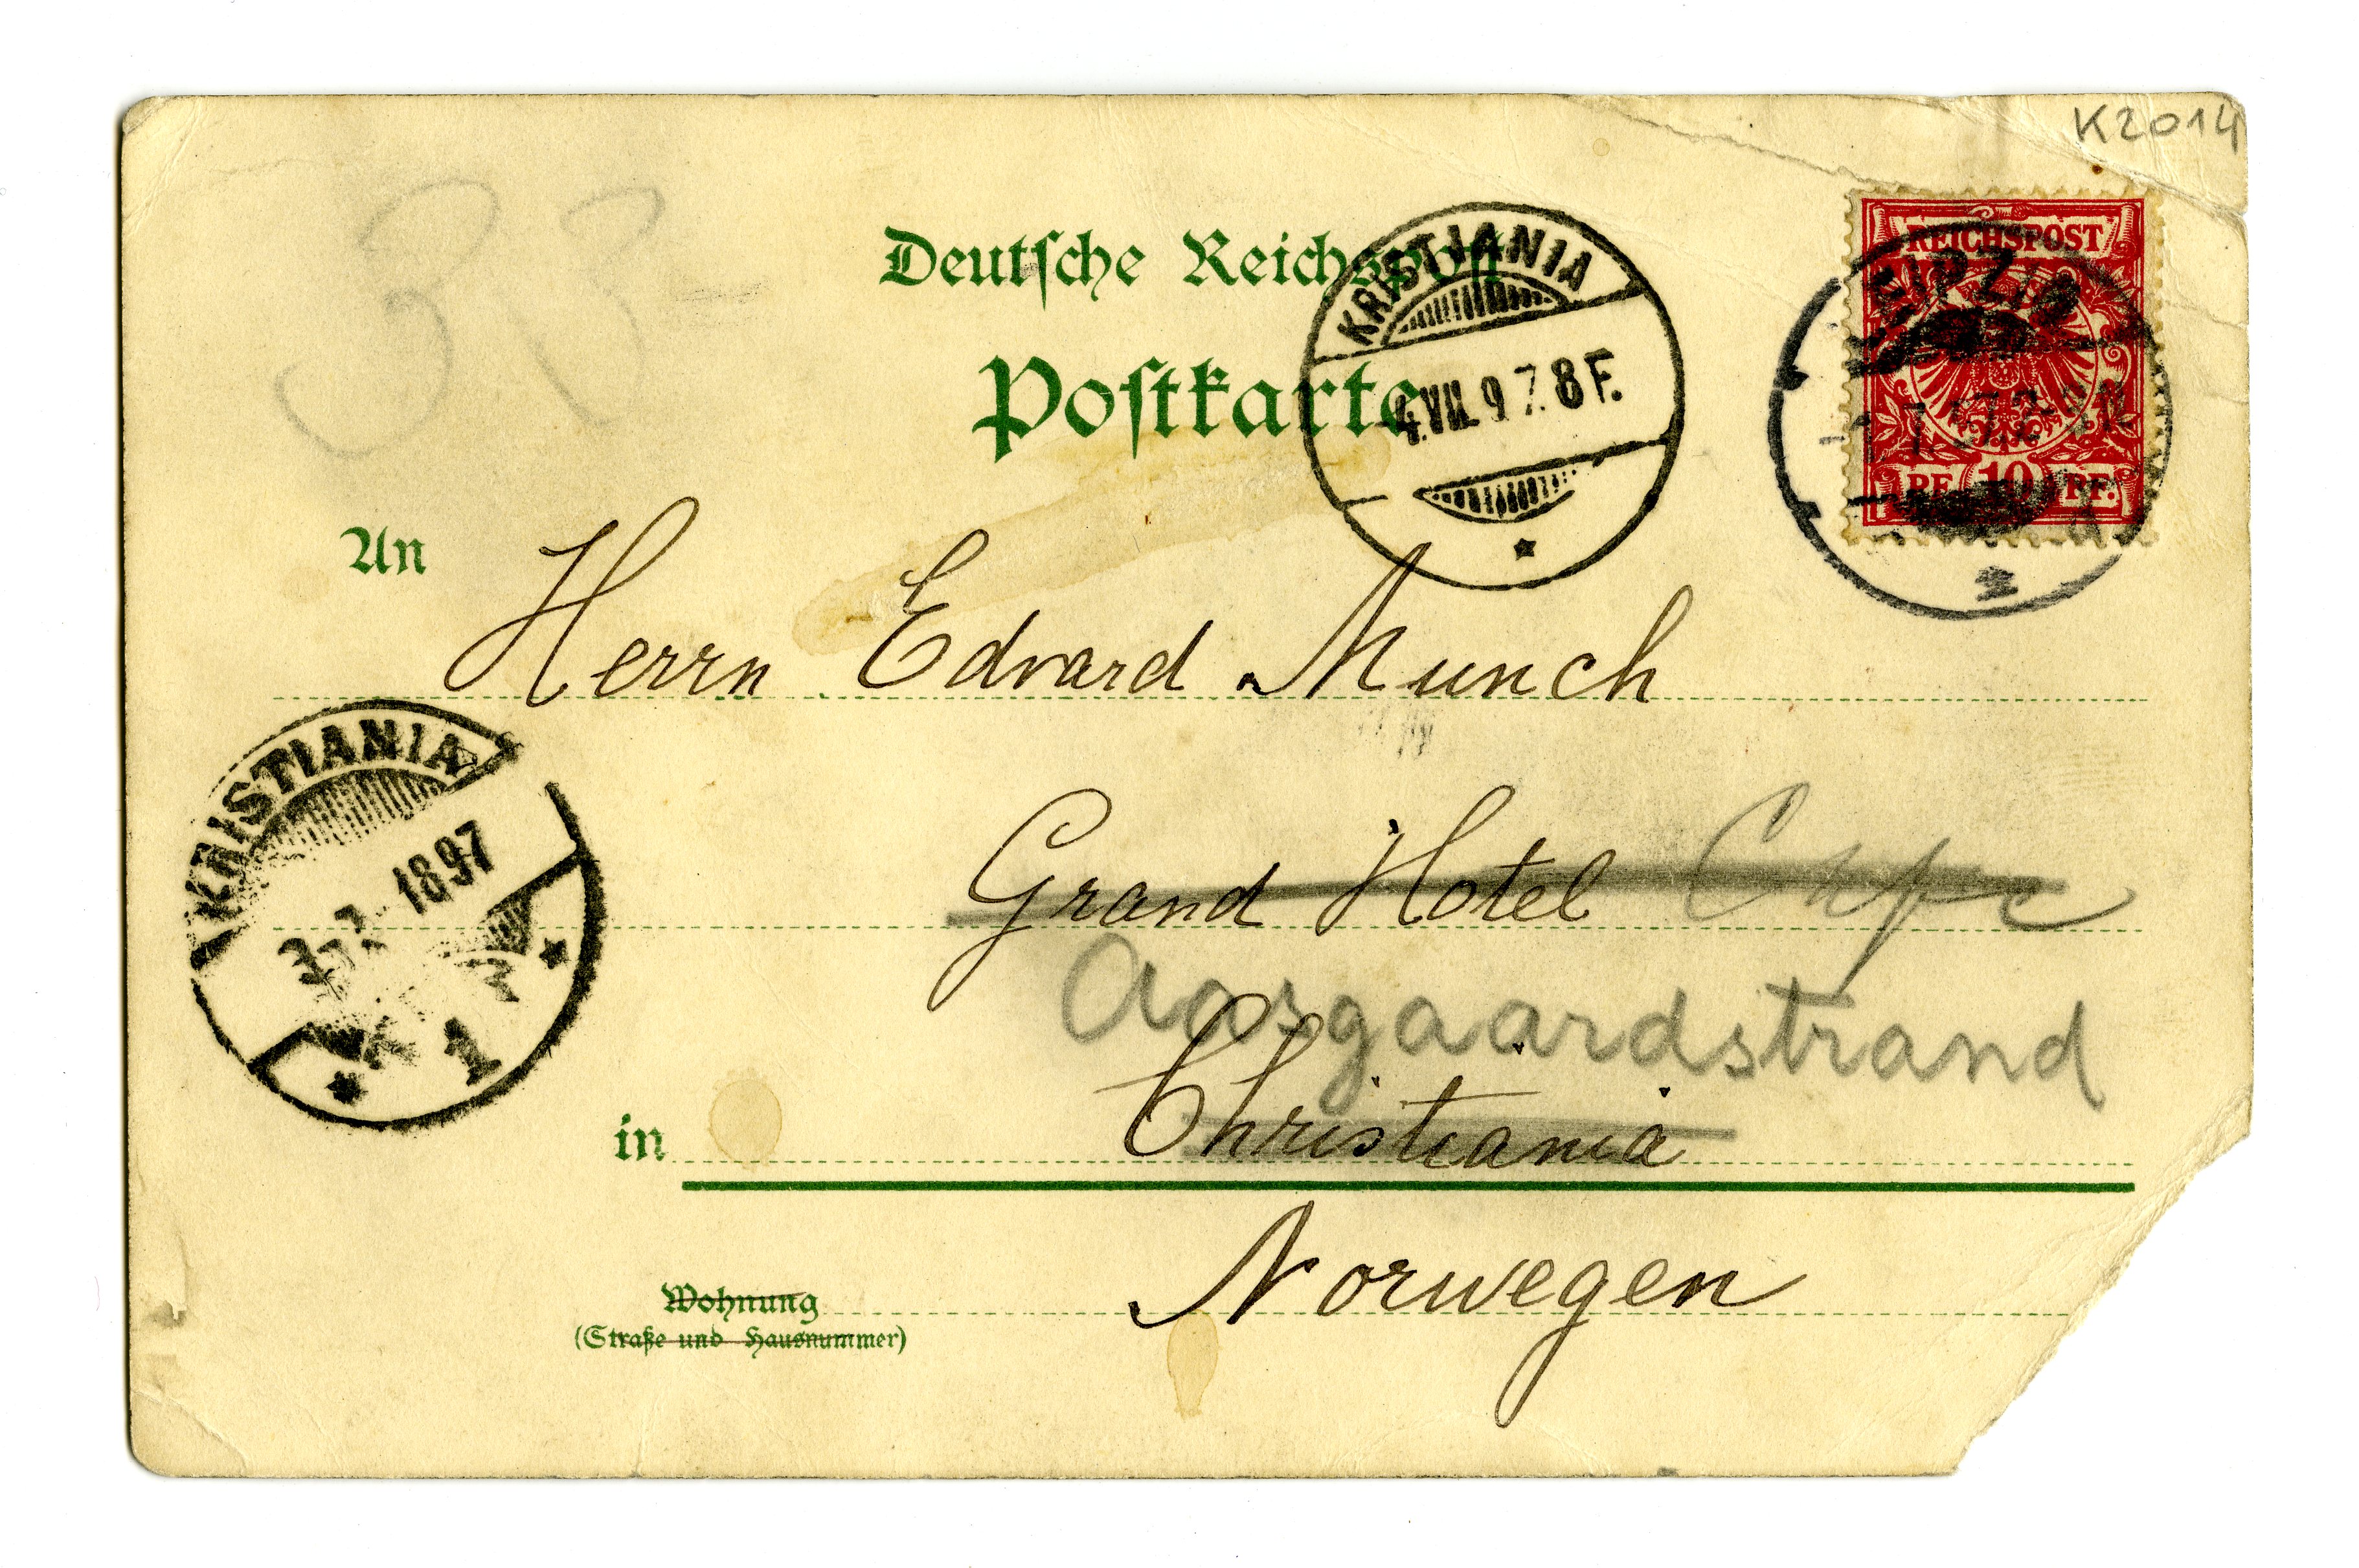 K2014
33
Deutsche Reichspost
Postkarte
KRISTIANIA
4.VII.97.8F.
REICHSPOST
PF. 10 PF.
LEIPZIG
2
An Herrn Edvard Munch
KRISTIANIA
1897
1
Grand Hotel Cafe
Aasgaardstrand
in Christiania
Norwegen
Wohnung
(Straße und Hausnummer)